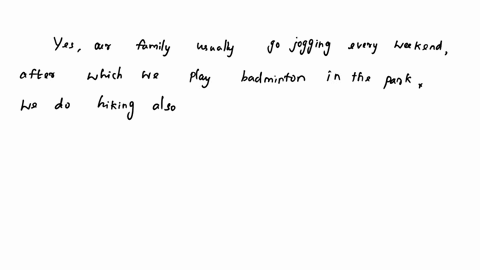 Yes, our family usually go jogging every weekend,
after which we play badminton in the park.
we do hiking also